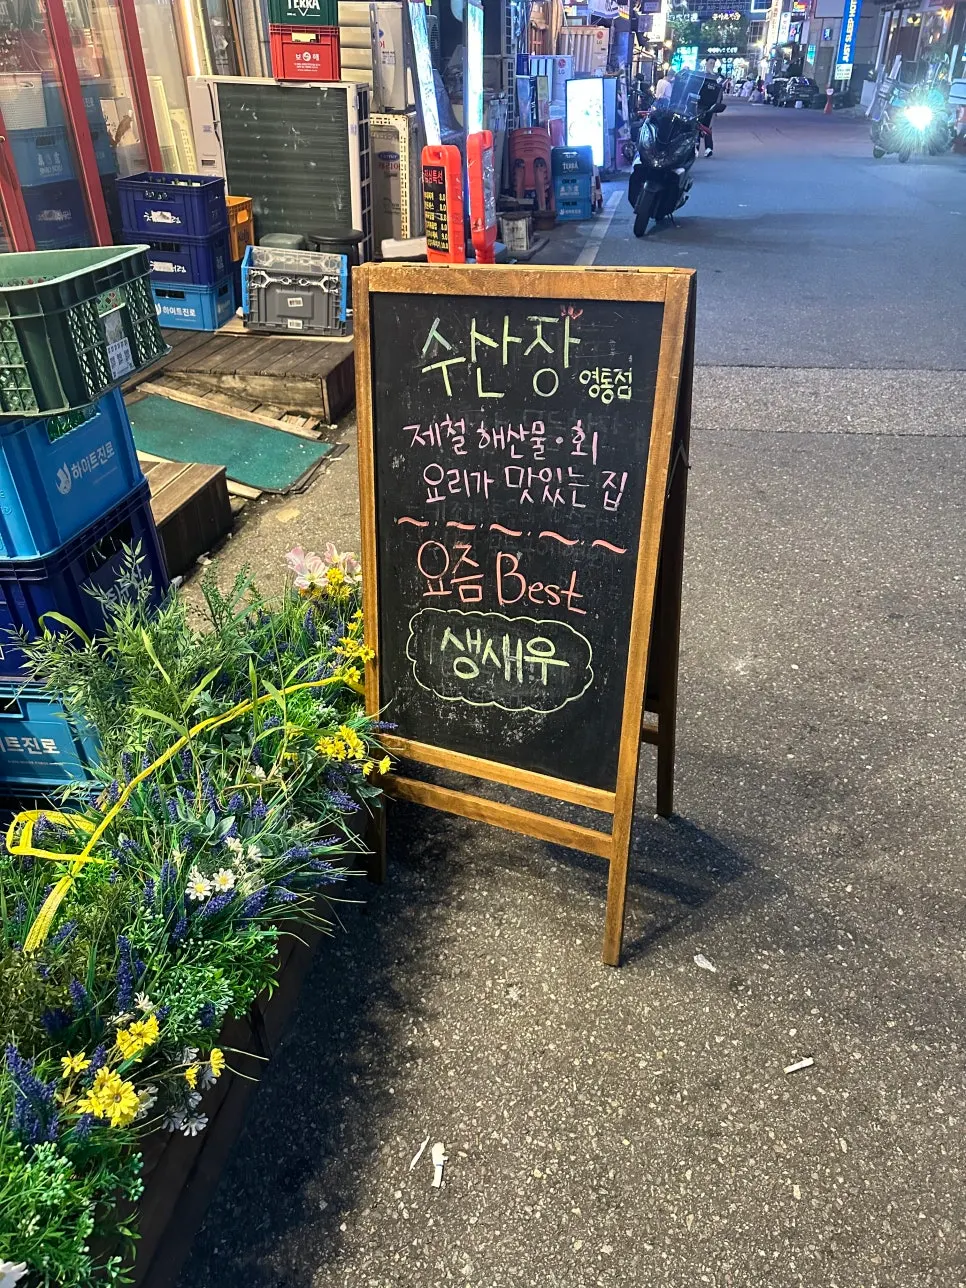 수산장
영통점
제철 해산물·회
요리가 맛있는 집
요즘 Best
생새우
TERRA
하이트진로
하이트진로
하이트진로
TERRA
JUST SLEEP HOTEL